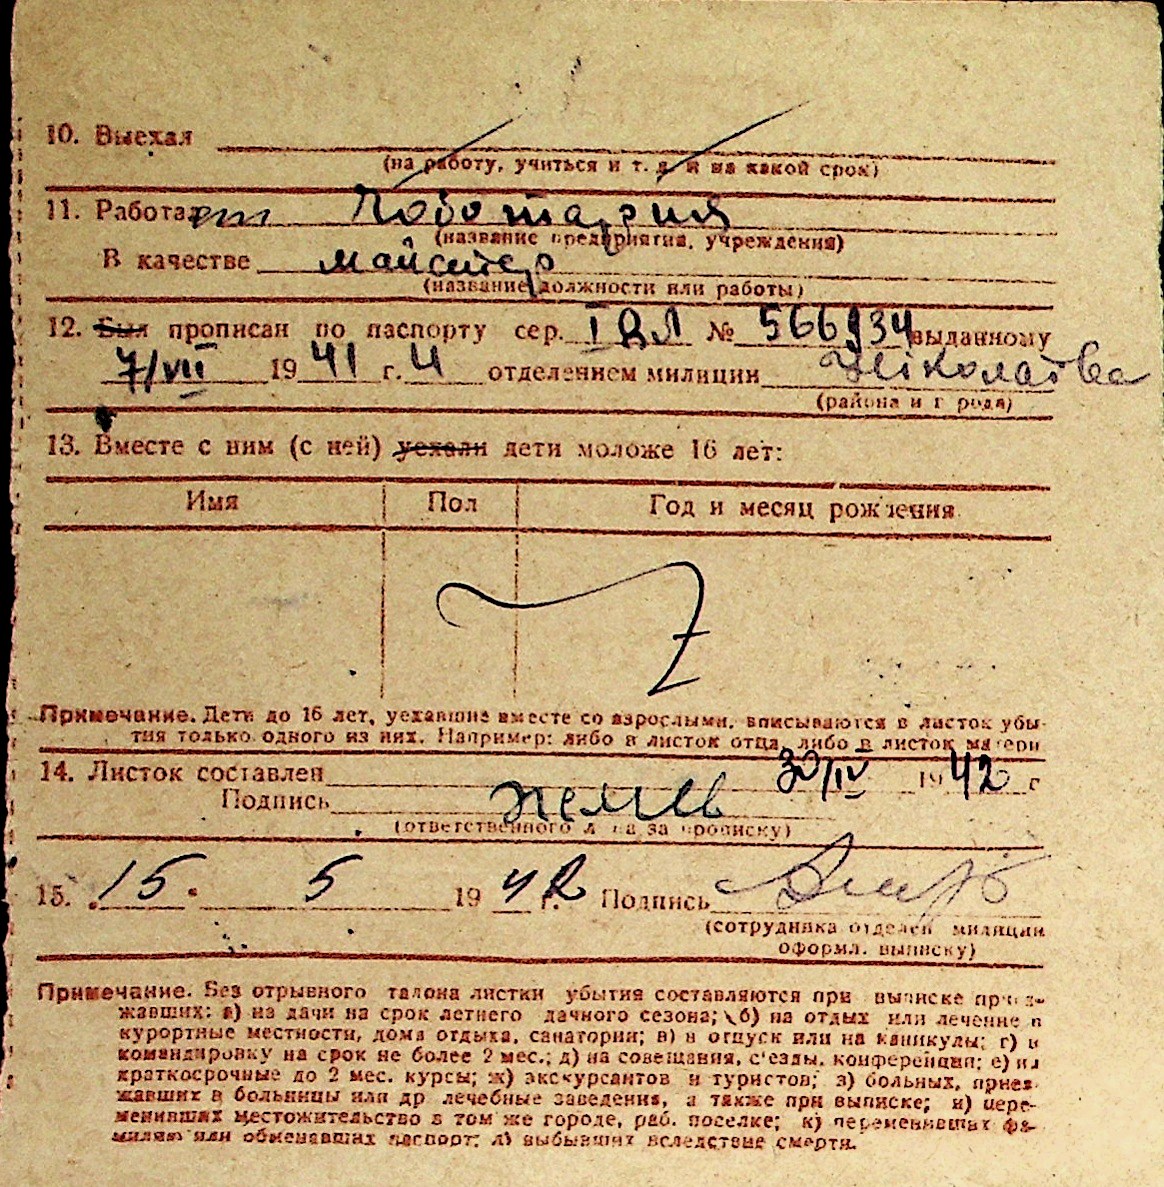 10. Выехал
(на работу, учиться и т. д. и на какой срок)
11. Работает
(название предприятия, учреждения)
В качестве майстер
(название должности или работы)
12. Был прописан по паспорту сер. I ВЛ № 566934 выданному
7/VII 1941 г. 4 отделением милиции
(района и города)
13. Вместе с ним (с ней) уехали дети моложе 16 лет:
Имя Пол Год и месяц рождения
Примечание. Дети до 16 лет, уехавшие вместе со взрослыми, вписываются в листок убы-
тия только одного из них. Например: либо в листок отца, либо в листок матери
14. Листок составлен 30/IV 1942 г
Подпись
(ответственного лица за прописку)
15. 15. 5 1942 г. Подпись
(сотрудника отделен милиции
оформл. выписку)
Примечание. Без отрывного талона листки убытия составляются при выписке приез-
жавших: а) на дачи на срок летнего дачного сезона; б) на отдых или лечение в
курортные местности, дома отдыха, санатории; в) в отпуск или на каникулы; г) в
командировку на срок не более 2 мес.; д) на совещания, с'езды, конференции; е) на
краткосрочные до 2 мес. курсы; ж) экскурсантов и туристов; з) больных, приез-
жавших в больницы или др лечебные заведения, а также при выписке; и) пере-
менивших местожительство в том же городе, раб. поселке; к) переменивших фа-
милию или обменявших паспорт; л) выбывших вследствие смерти.